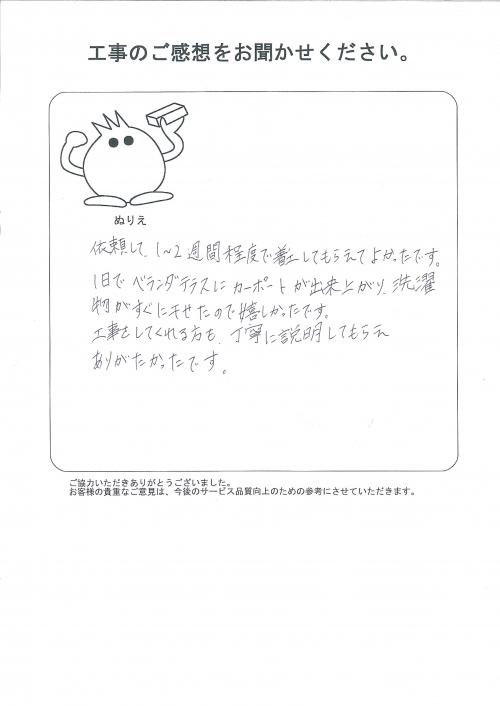 工事のご感想をお聞かせください。
ぬりえ
依頼して、1~2週間程度で着工してもらえてよかったです。
1日でベランダテラスにカーポートが出来上がり、洗濯
物がすぐに干せたので嬉しかったです。
工事をしてくれる方も、丁寧に説明してもらえ
ありがたかったです。
ご協力いただきありがとうございました。
お客様の貴重なご意見は、今後のサービス品質向上のための参考にさせていただきます。